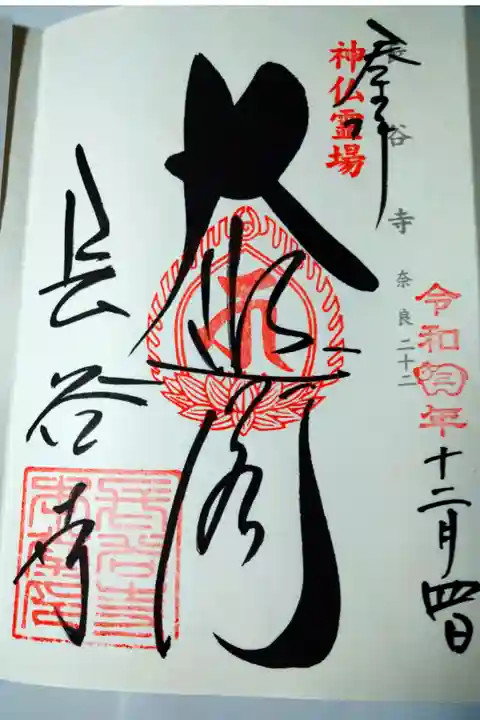 奉拝
神仏霊場
長谷寺 奈良二十二
令和四年十二月四日
大悲閣
長谷寺